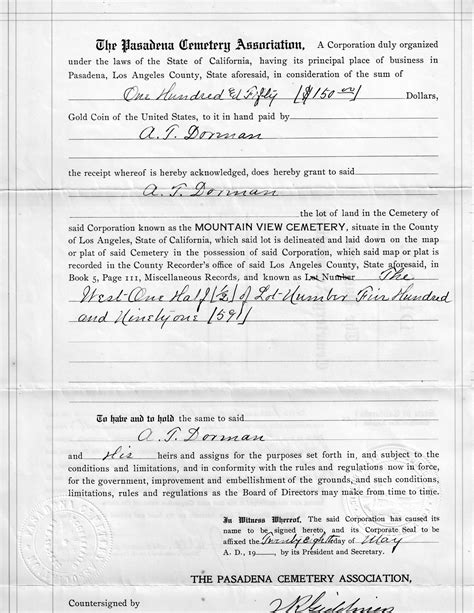 The Pasadena Cemetery Association, A Corporation duly organized
under the laws of the State of California, having its principal place of business in
Pasadena, Los Angeles County, State aforesaid, in consideration of the sum of
One Hundred & Fifty [$150.00] Dollars,
Gold Coin of the United States, to it in hand paid by
A. T. Dorman
the receipt whereof is hereby acknowledged, does hereby grant to said
A. T. Dorman
the lot of land in the Cemetery of
said Corporation known as the MOUNTAIN VIEW CEMETERY, situate in the County
of Los Angeles, State of California, which said lot is delineated and laid down on the map
or plat of said Cemetery in the possession of said Corporation, which said map or plat is
recorded in the County Recorder's office of said Los Angeles County, State aforesaid, in
Book 5, Page 111, Miscellaneous Records, and known as Lot Number The
West One Half [½] of Lot Number Five Hundred
and Ninety one [591]
To have and to hold the same to said
A. T. Dorman
and His heirs and assigns for the purposes set forth in, and subject to the
conditions and limitations, and in conformity with the rules and regulations now in force,
for the government, improvement and embellishment of the grounds, and such conditions,
limitations, rules and regulations as the Board of Directors may make from time to time.
In Witness Whereof, The said Corporation has caused its
name to be signed hereto, and its Corporate Seal to be
affixed the Twenty Eighth day of May
A. D., 19 , by its President and Secretary.
THE PASADENA CEMETERY ASSOCIATION,
Countersigned by